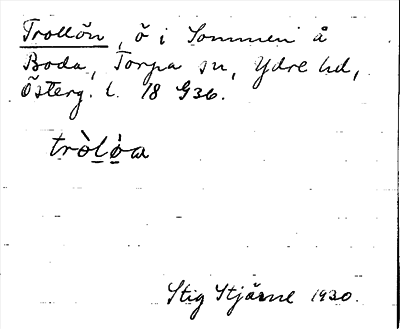 Trollön, ö i Sommen å
Boda, Torpa sn, Ydre hd,
Österg. l. 18 G36.
tròlò̩a
Stig Stjärne 1920.